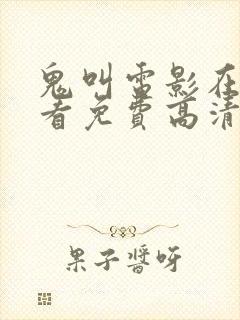 鬼叫雷影在
看免費高清
果子醬呀